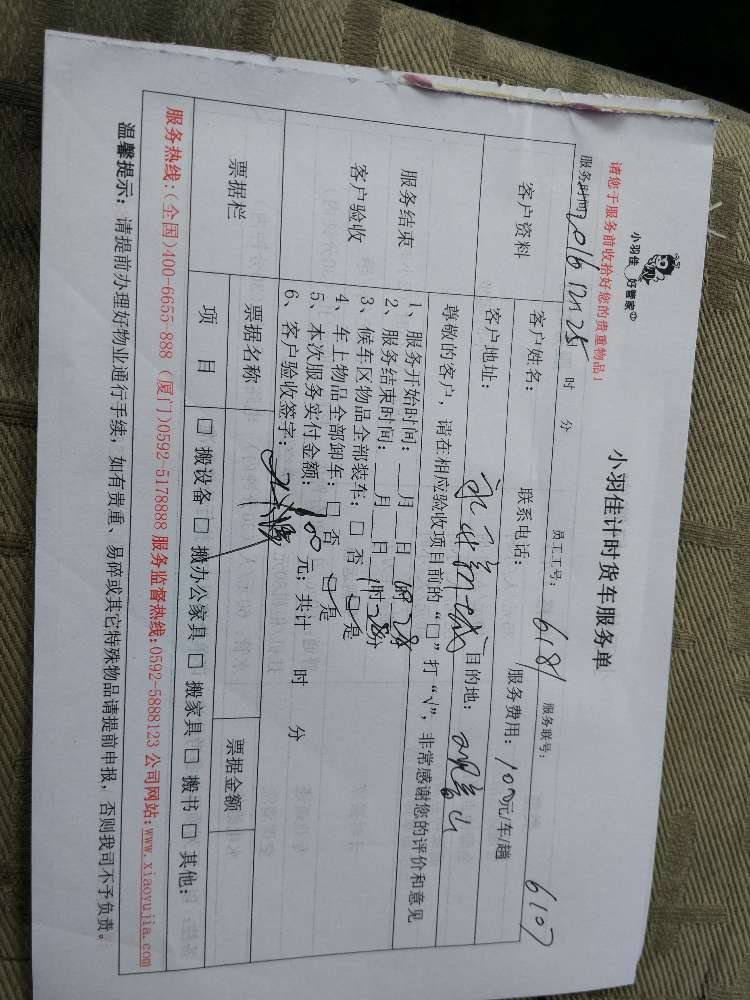 小羽佳 好管家
小羽佳计时货车服务单
请您于服务前收拾好您的贵重物品！
服务时间 2016 12月 25 时 分 员工工号： 6181 服务联号： 6107
客户资料
客户姓名： 联系电话： 服务费用： 100元/车/趟
客户地址： 新城 目的地： 观音山
尊敬的客户，请在相应验收项目前的“□”打“√”，非常感谢您的评价和意见
服务结束
客户验收
1、服务开始时间：__月__日
2、服务结束时间：__月__日
3、候车区物品全部装车：□ 否 □ 是
4、车上物品全部卸车：□ 否 □ 是
5、本次服务实付金额： 100 元；共计 时 分
6、客户验收签字：
票据栏 票据名称 票据金额
项 目 □ 搬设备 □ 搬办公家具 □ 搬家具 □ 搬书 □ 其他：
服务热线：(全国)400-6655-888 (厦门)0592-5178888 服务监督热线：0592-5888123 公司网站：www.xiaoyujia.com
温馨提示：请提前办理好物业通行手续，如有贵重、易碎或其它特殊物品请提前申报，否则我司不予负责。